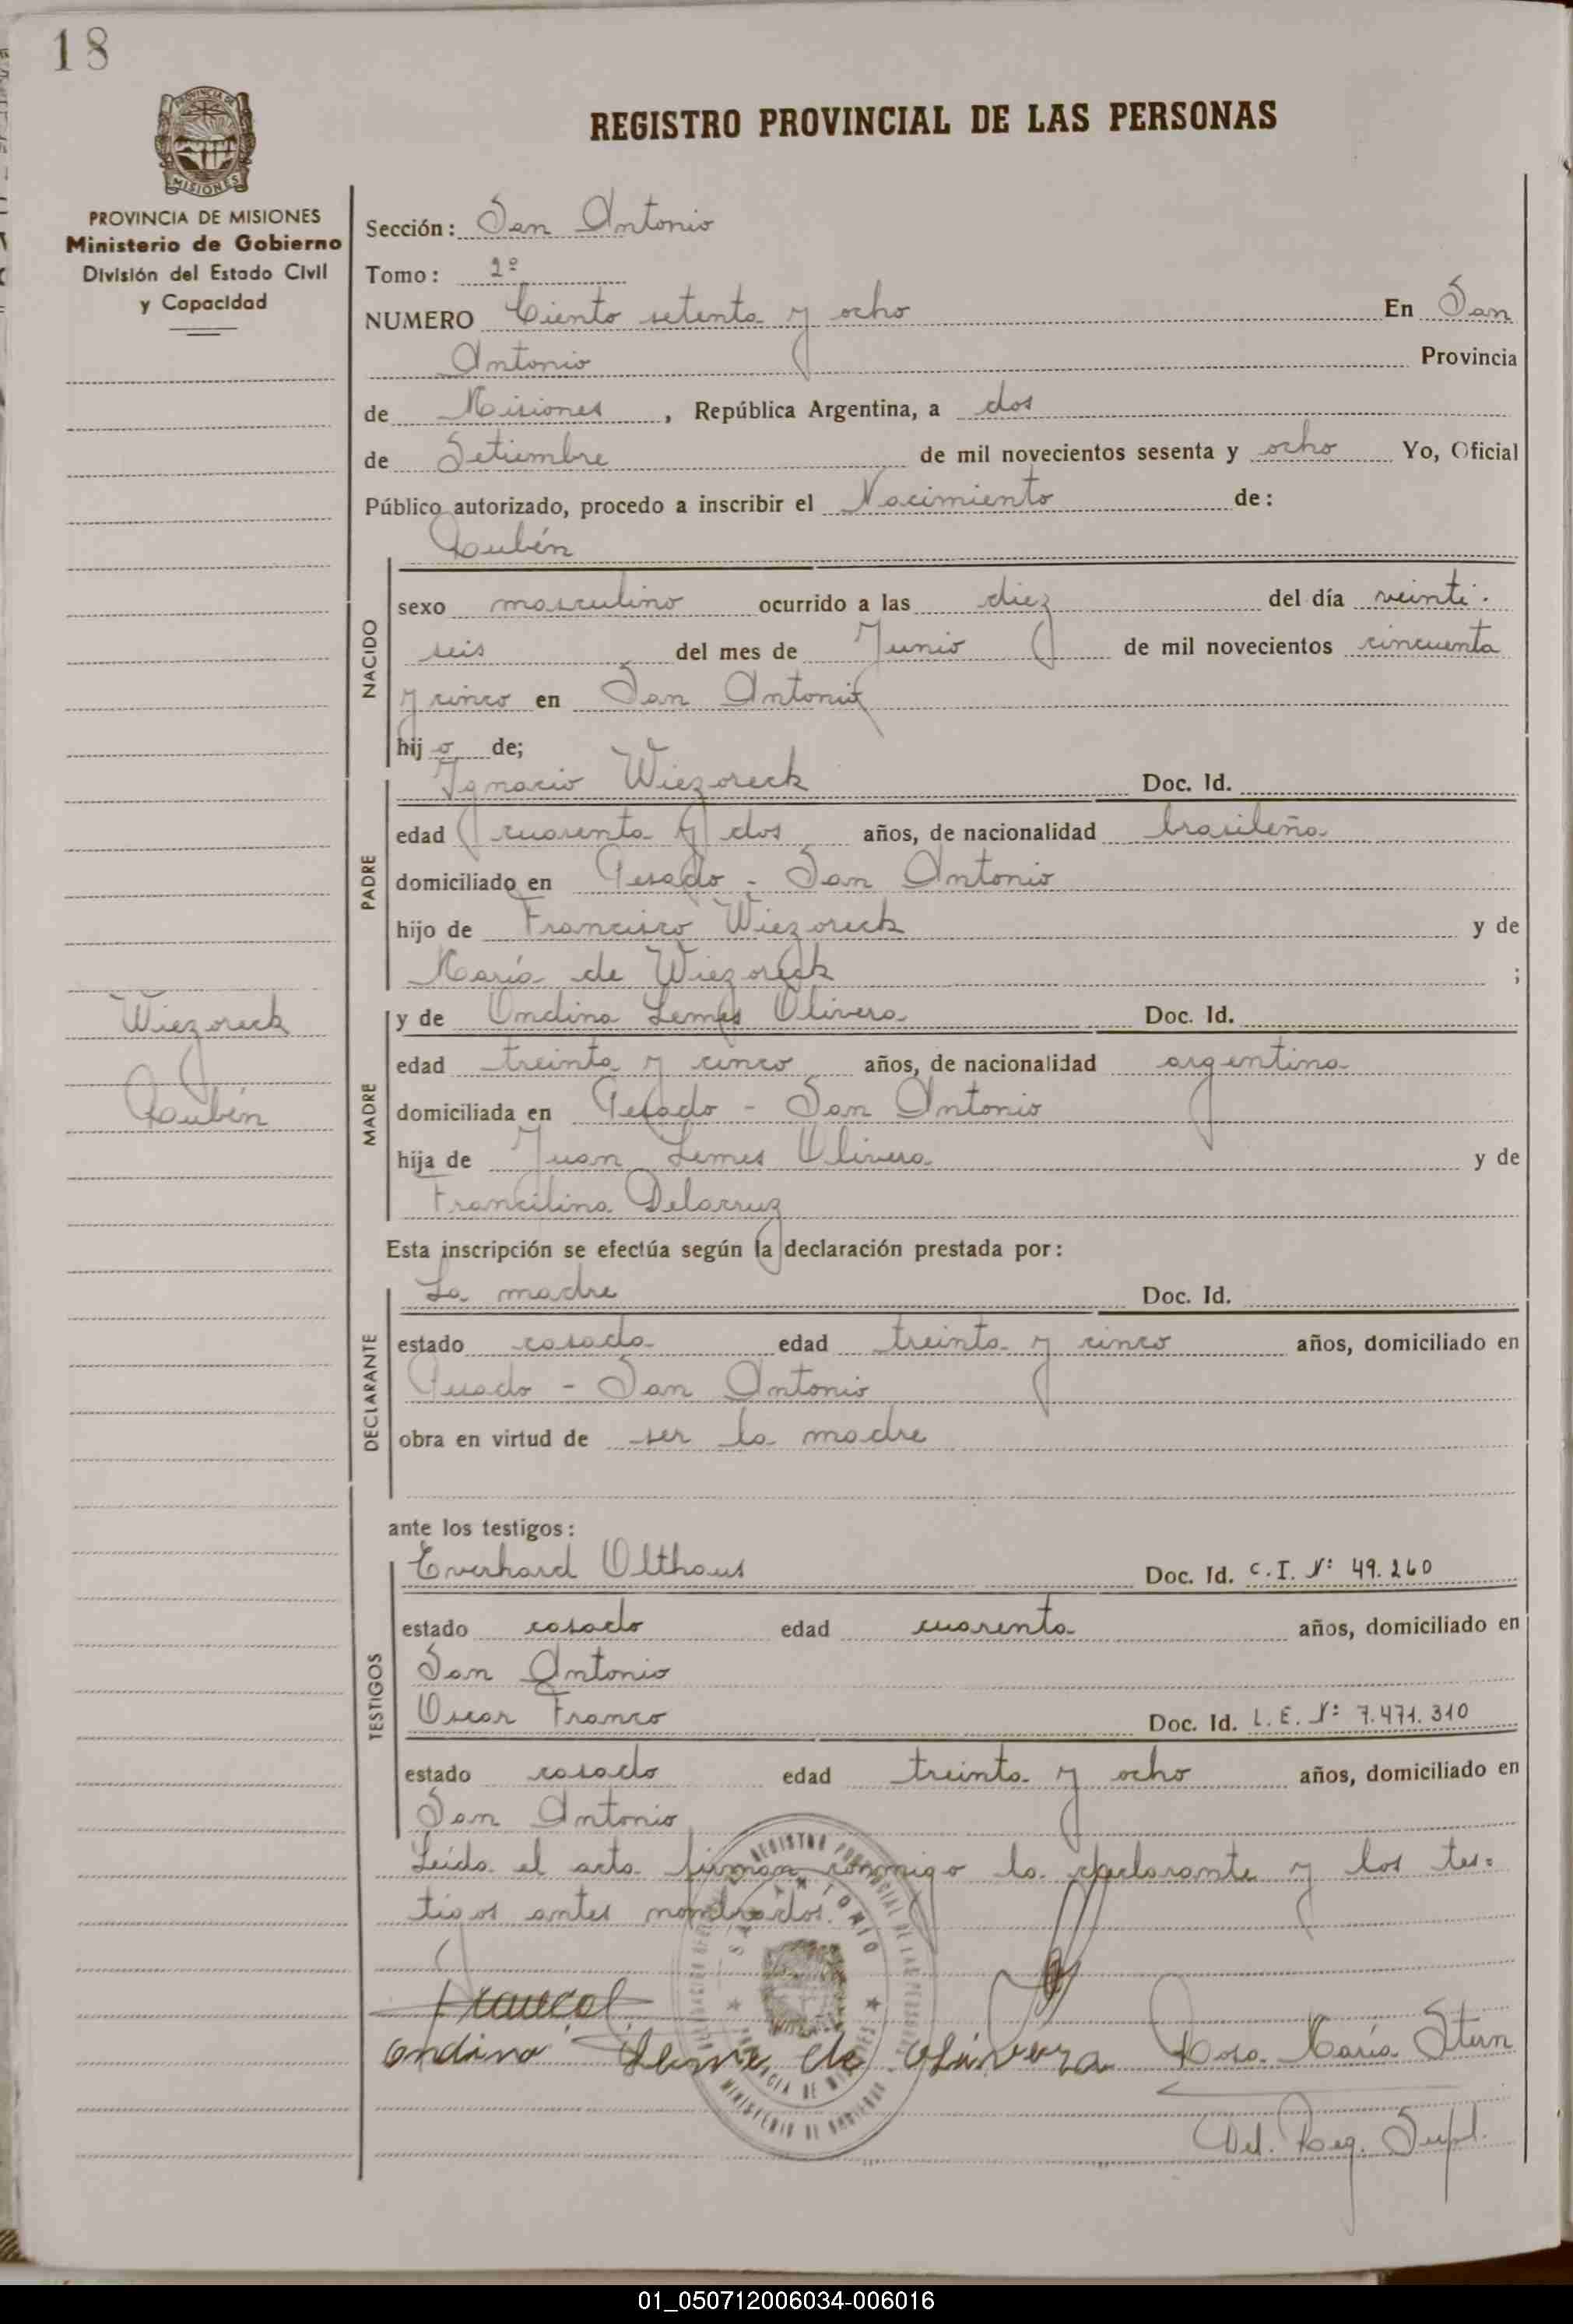 18
PROVINCIA DE MISIONES
Ministerio de Gobierno
División del Estado Civil
y Capacidad
REGISTRO PROVINCIAL DE LAS PERSONAS
Sección: San Antonio
Tomo: 2º
NUMERO Ciento setenta y ocho En San
Antonio Provincia
de Misiones, República Argentina, a dos
de Setiembre de mil novecientos sesenta y ocho Yo, Oficial
Público autorizado, procedo a inscribir el Nacimiento de:
Rubén
NACIDO
sexo masculino ocurrido a las diez del día veinti-
seis del mes de Junio de mil novecientos cincuenta
y cinco en San Antonio
hij o de;
PADRE
Ignacio Wiezoreck Doc. Id.
edad cuarenta y dos años, de nacionalidad brasileña
domiciliado en Pesado - San Antonio
hijo de Francisco Wiezoreck y de
María de Wiezoreck ;
Wiezoreck
Rubén
MADRE
y de Ondina Lemes Olivera Doc. Id.
edad treinta y cinco años, de nacionalidad argentina
domiciliada en Pesado - San Antonio
hija de Juan Lemes Olivera y de
Francilina Delacruz
Esta inscripción se efectúa según la declaración prestada por:
DECLARANTE
La madre Doc. Id.
estado casada edad treinta y cinco años, domiciliado en
Pesado - San Antonio
obra en virtud de ser la madre
ante los testigos:
TESTIGOS
Everhard Olthaus Doc. Id. C.I. Nº 49.260
estado casado edad cuarenta años, domiciliado en
San Antonio
Oscar Franco Doc. Id. L.E. Nº 7.471.310
estado casado edad treinta y ocho años, domiciliado en
San Antonio
Leída el acta firman conmigo la declarante y los tes-
tigos antes nombrados.
REGISTRO PROVINCIAL DE LAS PERSONAS
SAN ANTONIO
PROVINCIA DE MISIONES
MINISTERIO DE GOBIERNO
ondina Leme de Olivera Rosa María Stern
Del. Reg. Supl.
01_050712006034-006016